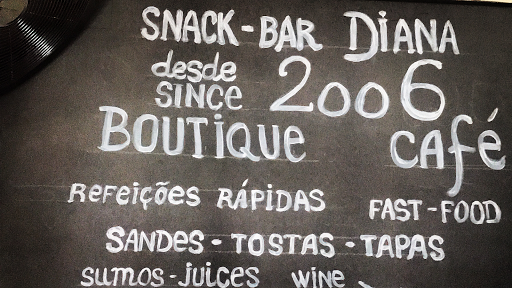 SNACK-BAR DIANA
desde
SINCE 2006
BOUTIQUE café
REFEIÇÕES RÁPIDAS FAST-FOOD
SANDES - TOSTAS - TAPAS
SUMOS - JUICES WINE